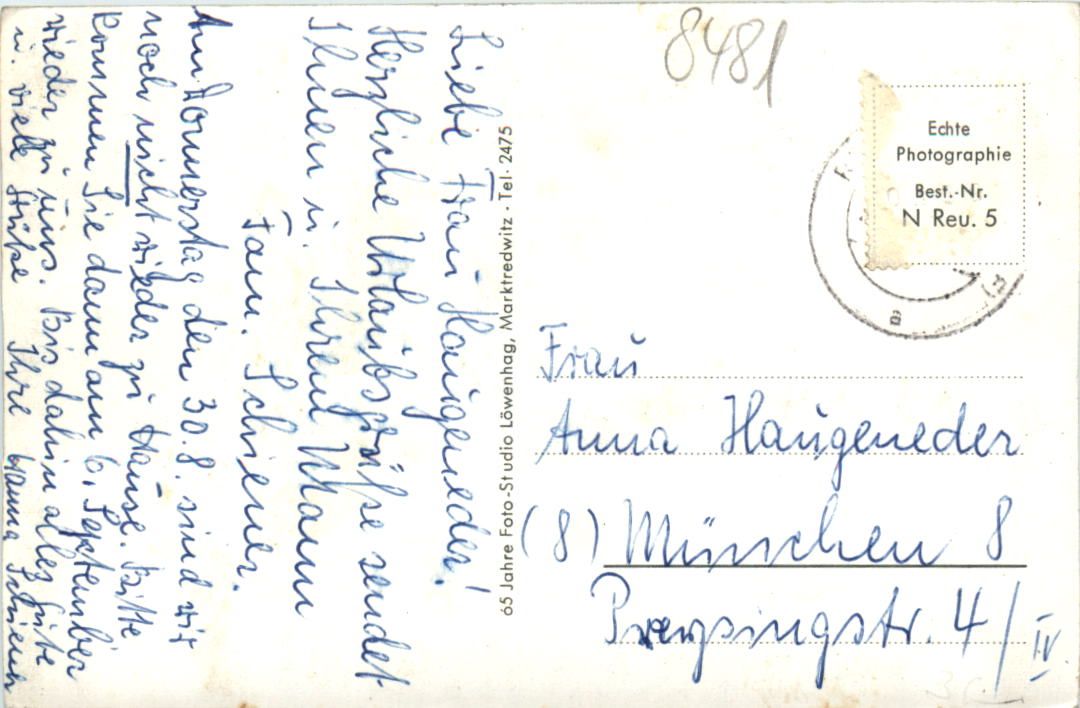 Liebe Frau Haugeneder!
Herzliche Urlaubsgrüße sendet
Ihnen u. Ihrem Mann
Fam. Schiener.
Am Donnerstag den 30.8. sind wir
noch nicht wieder zu Hause. Bitte
kommen Sie dann am 6. September
wieder zu uns. Bis dahin alles Gute
u. viele Grüße Ihre Hanna Schiener
65 Jahre Foto-Studio Löwenhag, Marktredwitz · Tel. 2475
8481
Echte
Photographie
Best.-Nr.
N Reu. 5
Frau
Anna Haugeneder
(8) München 8
Preysingstr. 4/IV.